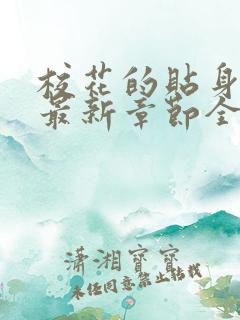 校花的贴身
最新章节全
潇湘宝宝
未经同意禁止转载